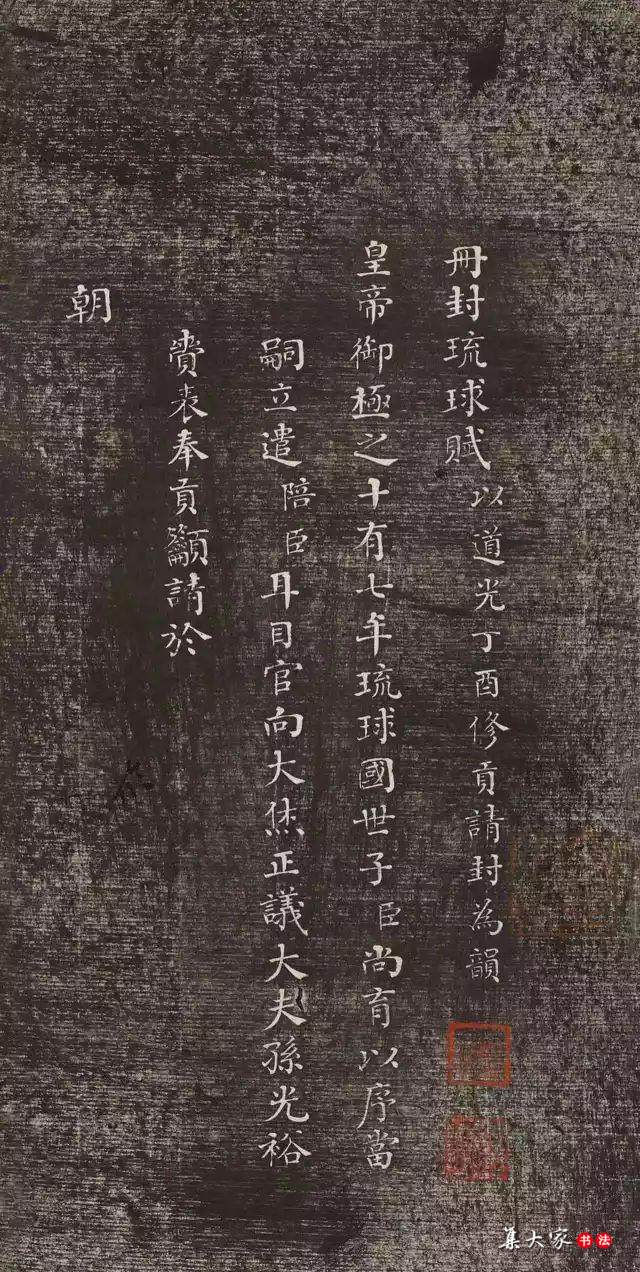 冊封琉球賦以道光丁酉修貢請封為韻
皇帝御極之十有七年琉球國世子臣尚育以序當
嗣立遣陪臣耳目官向大烋正議大夫孫光裕
賫表奉貢籲請於
朝
集大家书法